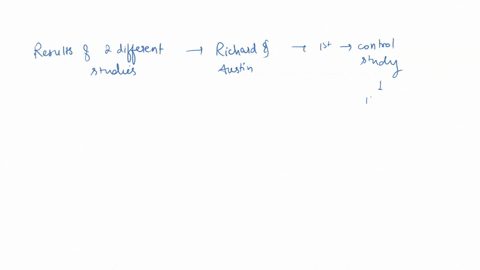 Results of 2 different → Richard & → 1st → control
studies Austin study
↓